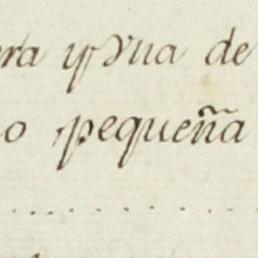 era y una de
o pequeña